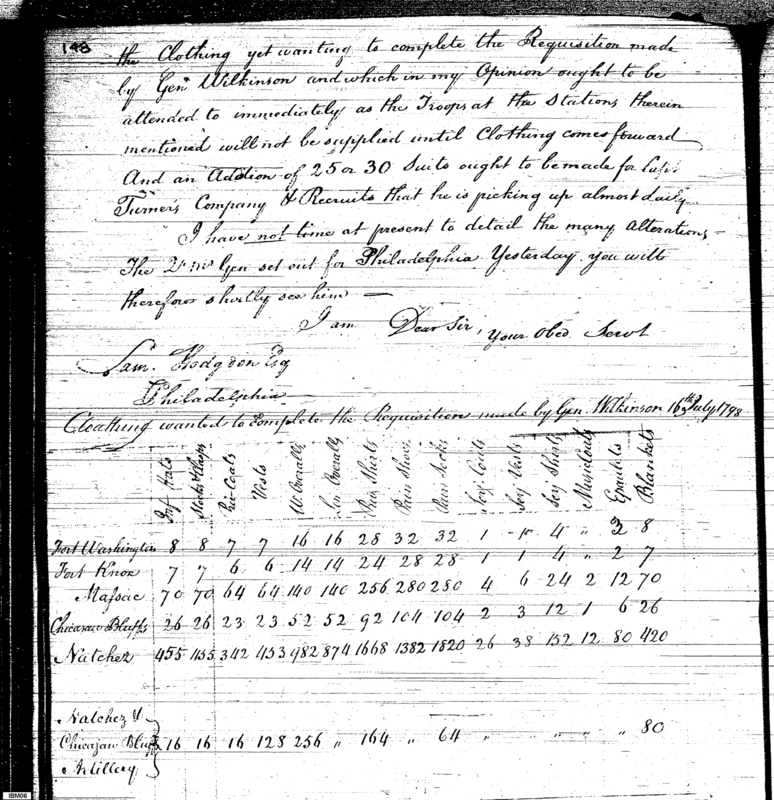 148
the Clothing yet wanting to complete the Requisition made
by Genl Wilkinson and which in my Opinion ought to be
attended to immediately as the Troops at the Stations therein
mentioned will not be supplied until Clothing comes forward
And an Addition of 25 or 30 Suits ought to be made for Capt
Turner's Company & Recruits that he is picking up almost daily
I have not time at present to detail the many Alterations
The Qr Mr Gen set out for Philadelphia Yesterday you will
therefore shortly see him —
I am Dear Sir, Your Obed. Servt
Sam. Hodgdon Esq
Philadelphia
Cloathing wanted to complete the Requisition made by Gen. Wilkinson 16th July 1798
Inf. Hats Stocks & Clasps Priv. Coats Vests W. Overalls Lin Overalls Priv Shirts Pairs Shoes Pairs Socks Serj Coats Serj Vests Serj Shirts Music Coats Epaulets Blankets
Fort Washington 8 8 7 7 16 16 28 32 32 1 4 " 8
Fort Knox 7 7 6 6 14 14 24 28 28 1 1 4 " 2 7
Massac 70 70 64 64 140 140 256 280 280 4 6 24 2 12 70
Chicasaw Bluffs 26 26 23 23 52 52 92 104 104 2 3 12 1 6 26
Natchez 455 455 342 453 982 874 1668 1382 1820 26 38 152 12 80 420
Natchez &
Chicasaw Bluffs 16 16 16 128 256 " 164 " 64 " " " " " 80
Artillery
IBM06